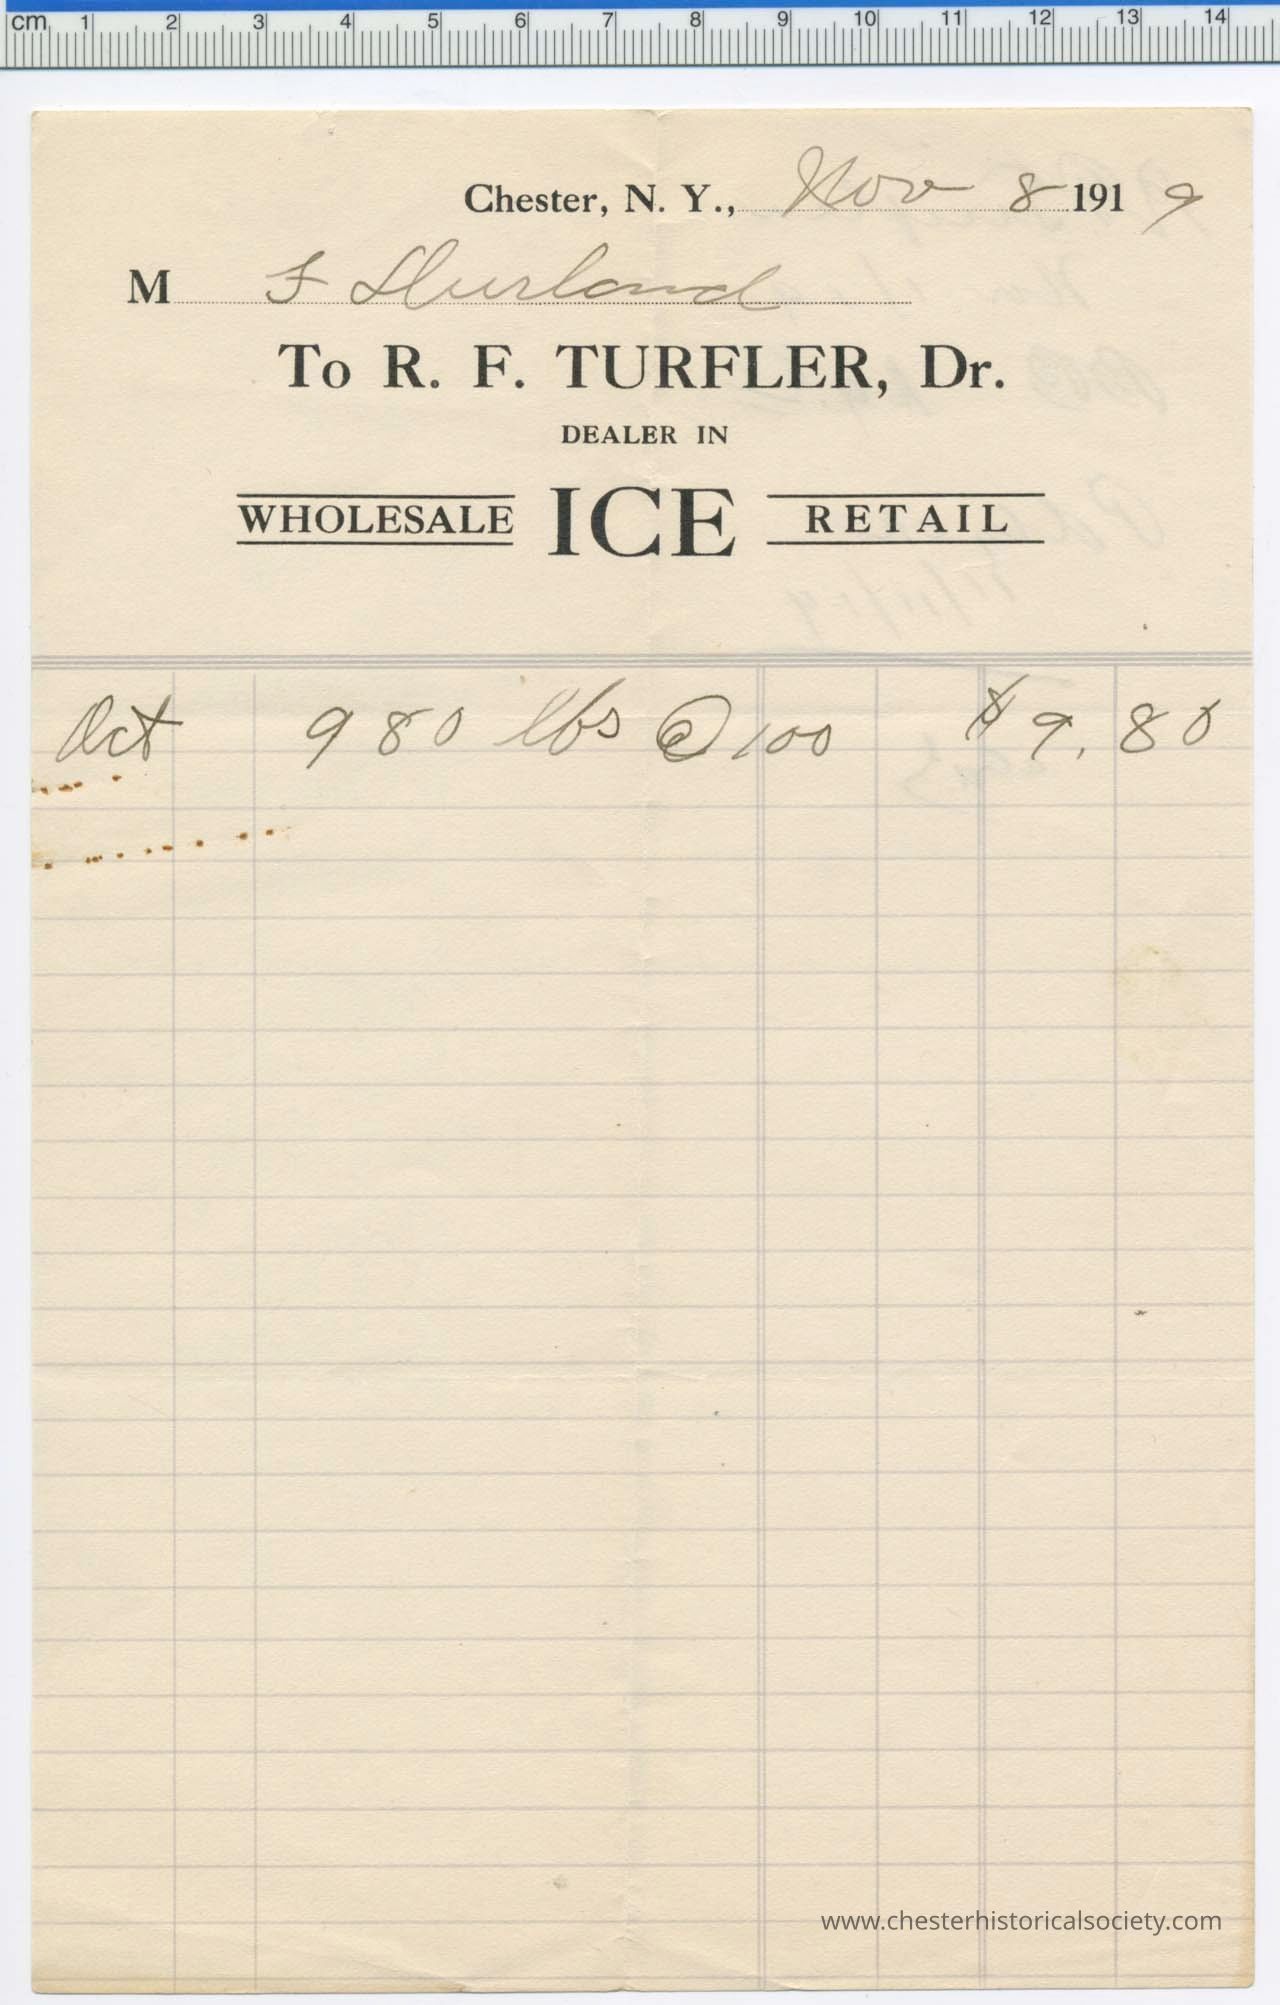 cm 1 2 3 4 5 6 7 8 9 10 11 12 13 14
Chester, N. Y., Nov 8 1919
M F Durland
To R. F. TURFLER, Dr.
DEALER IN
WHOLESALE ICE RETAIL
Oct 980 lbs @ 100 $ 9.80
www.chesterhistoricalsociety.com